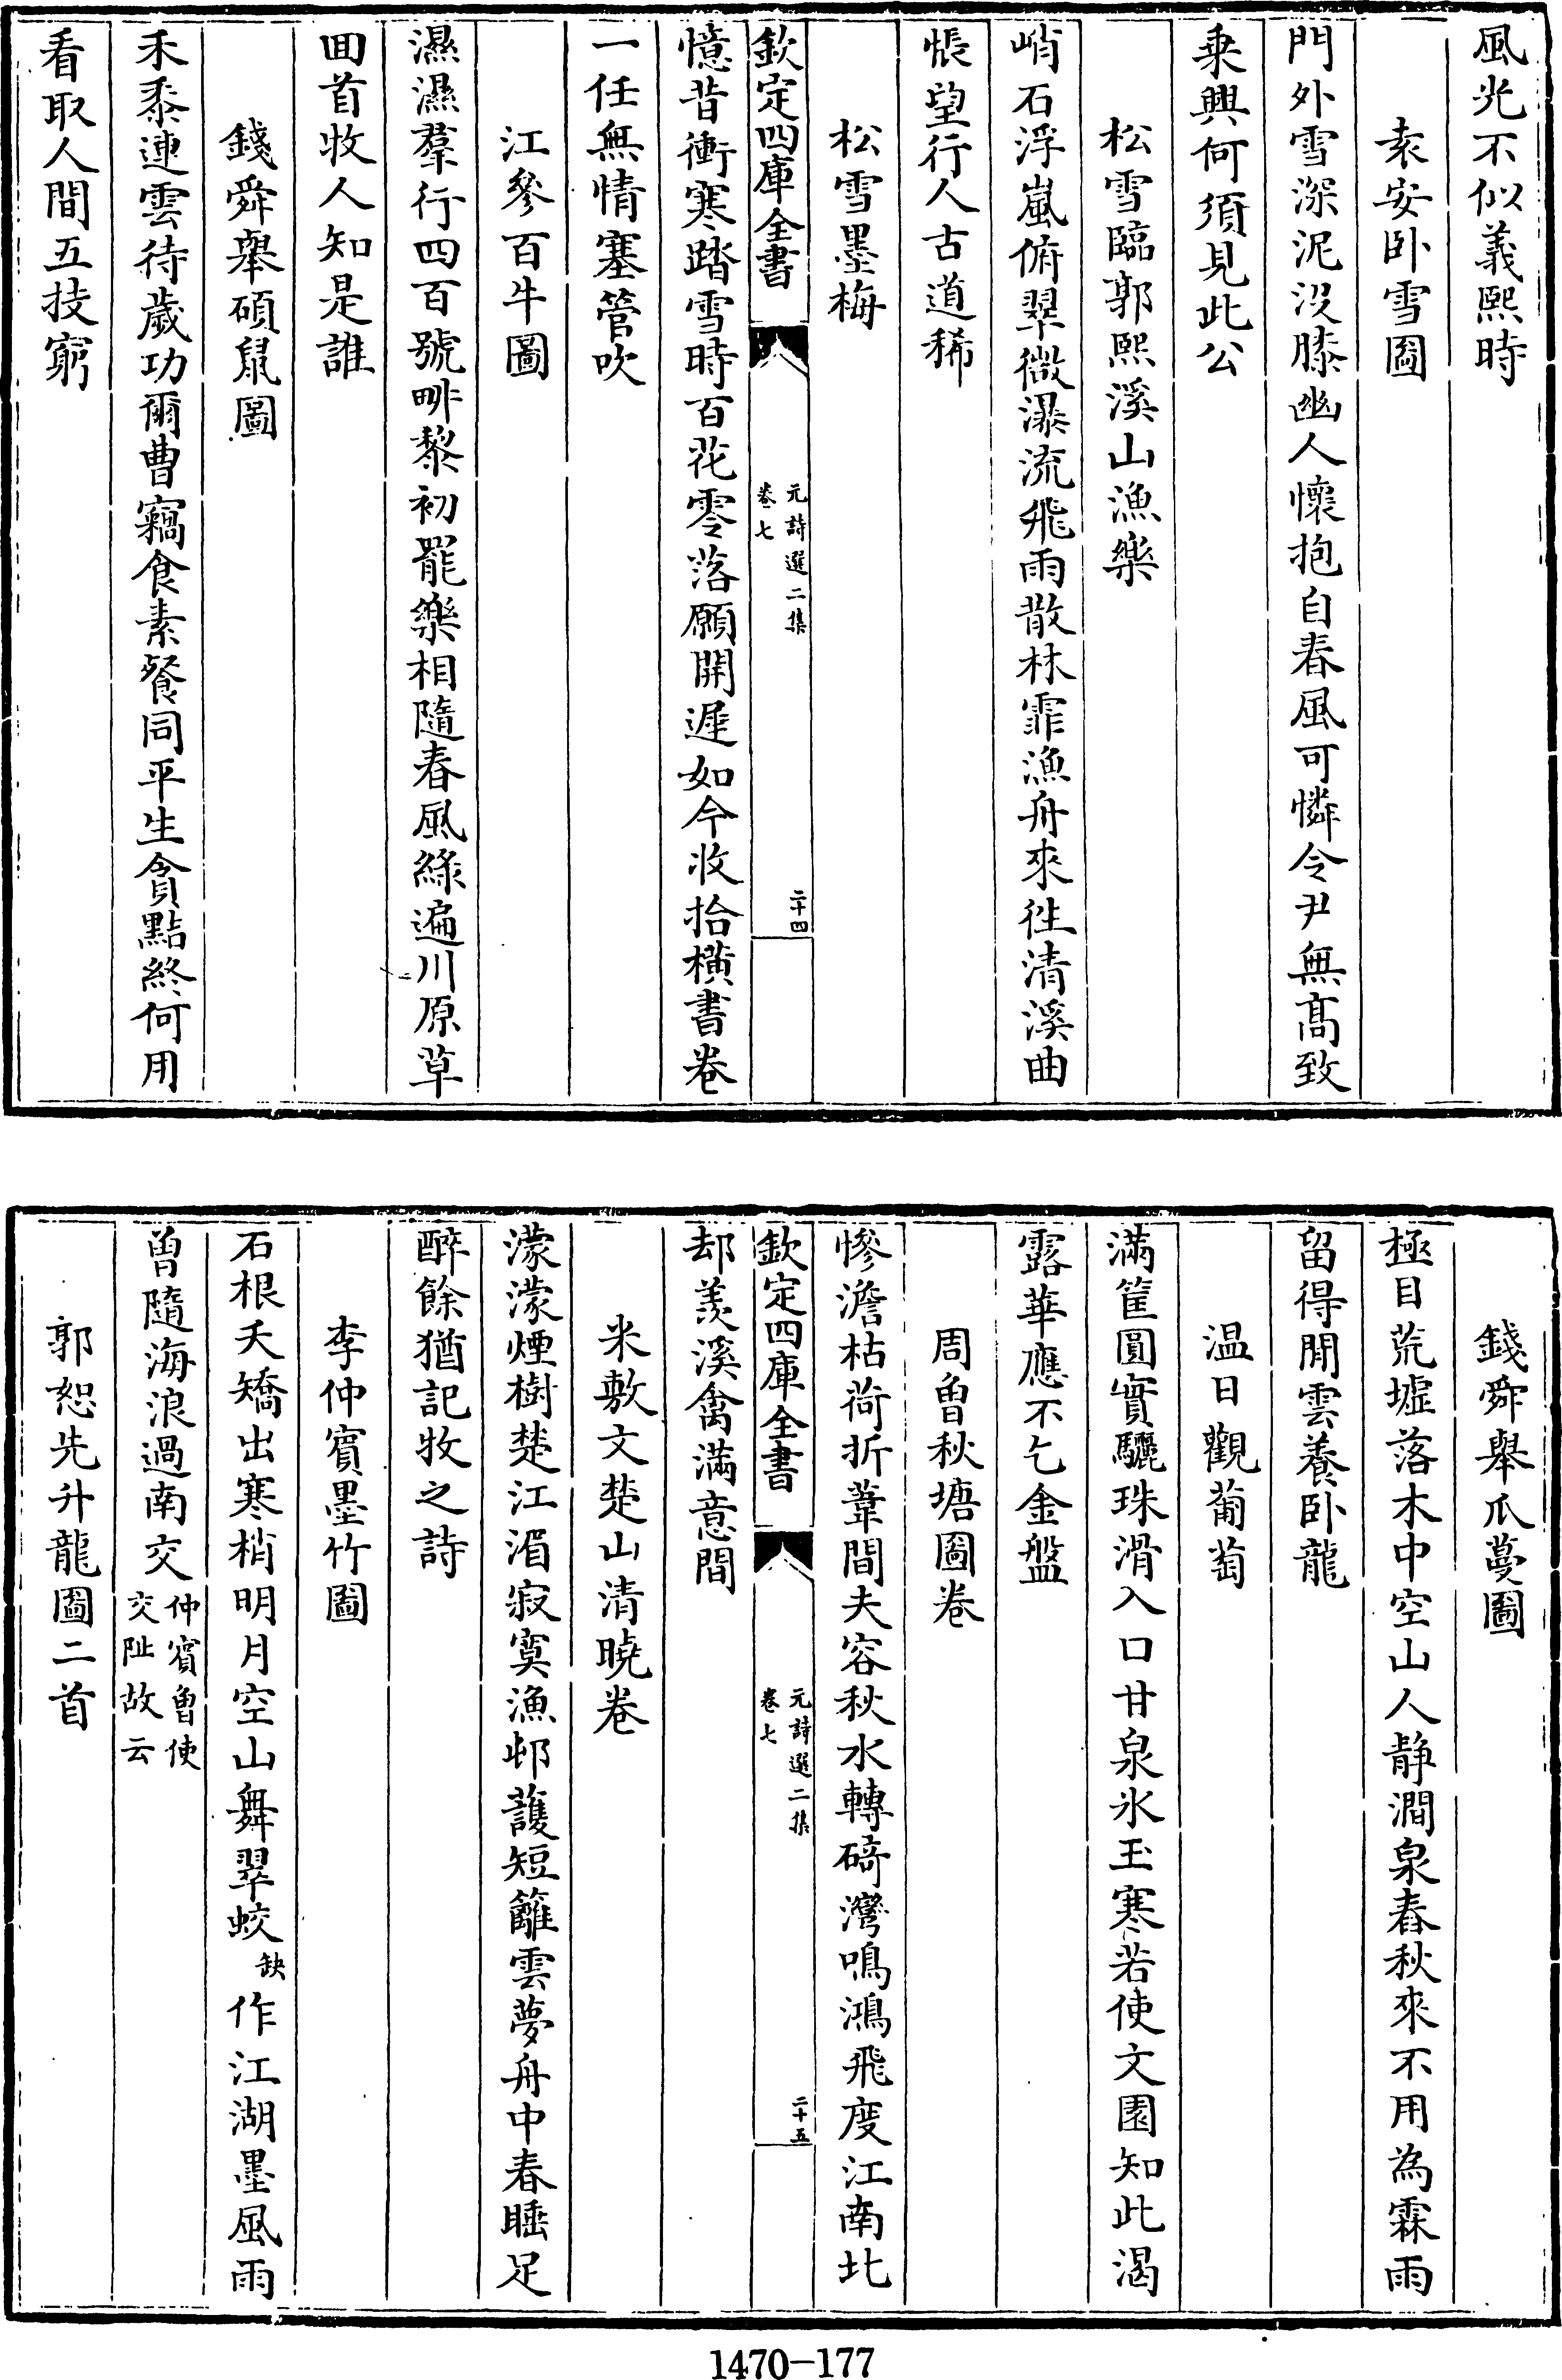 風光不似義熙時
袁安卧雪圖
門外雪深泥没膝幽人懷抱自春風可憐令尹無髙致
乗興何須見此公
松雪臨郭熙溪山漁樂
峭石浮嵐俯翠微瀑流飛雨散林霏漁舟來徃清溪曲
悵望行人古道稀
松雪墨梅
欽定四庫全書
元詩選二集
卷七
二十四
憶昔衝寒踏雪時百花零落願開遲如今收拾橫書卷
一任無情塞管吹
江參百牛圖
濕濕羣行四百號畊黎初罷樂相隨春風綠遍川原草
囬首牧人知是誰
錢舜舉碩鼠圖
禾黍連雲待歲功爾曹竊食素餐同平生貪黠終何用
看取人間五技窮
錢舜舉瓜蔓圖
極目荒墟落木中空山人静澗泉舂秋來不用為霖雨
留得閒雲養卧龍
温日觀葡萄
滿筐圓實驪珠滑入口甘泉氷玉寒若使文園知此渴
露華應不乞金盤
周曾秋塘圖卷
慘澹枯荷折葦間夫容秋水轉碕灣鳴鴻飛度江南北
欽定四庫全書
元詩選二集
卷七
二十五
却羨溪禽滿意閒
米敷文楚山清曉卷
濛濛煙樹楚江湄寂寞漁邨護短籬雲夢舟中春睡足
醉餘猶記牧之詩
李仲賓墨竹圖
石根夭矯出寒梢明月空山舞翠蛟缺作江湖墨風雨
曾隨海浪過南交仲賓曾使交阯故云
郭恕先升龍圖二首
1470-177